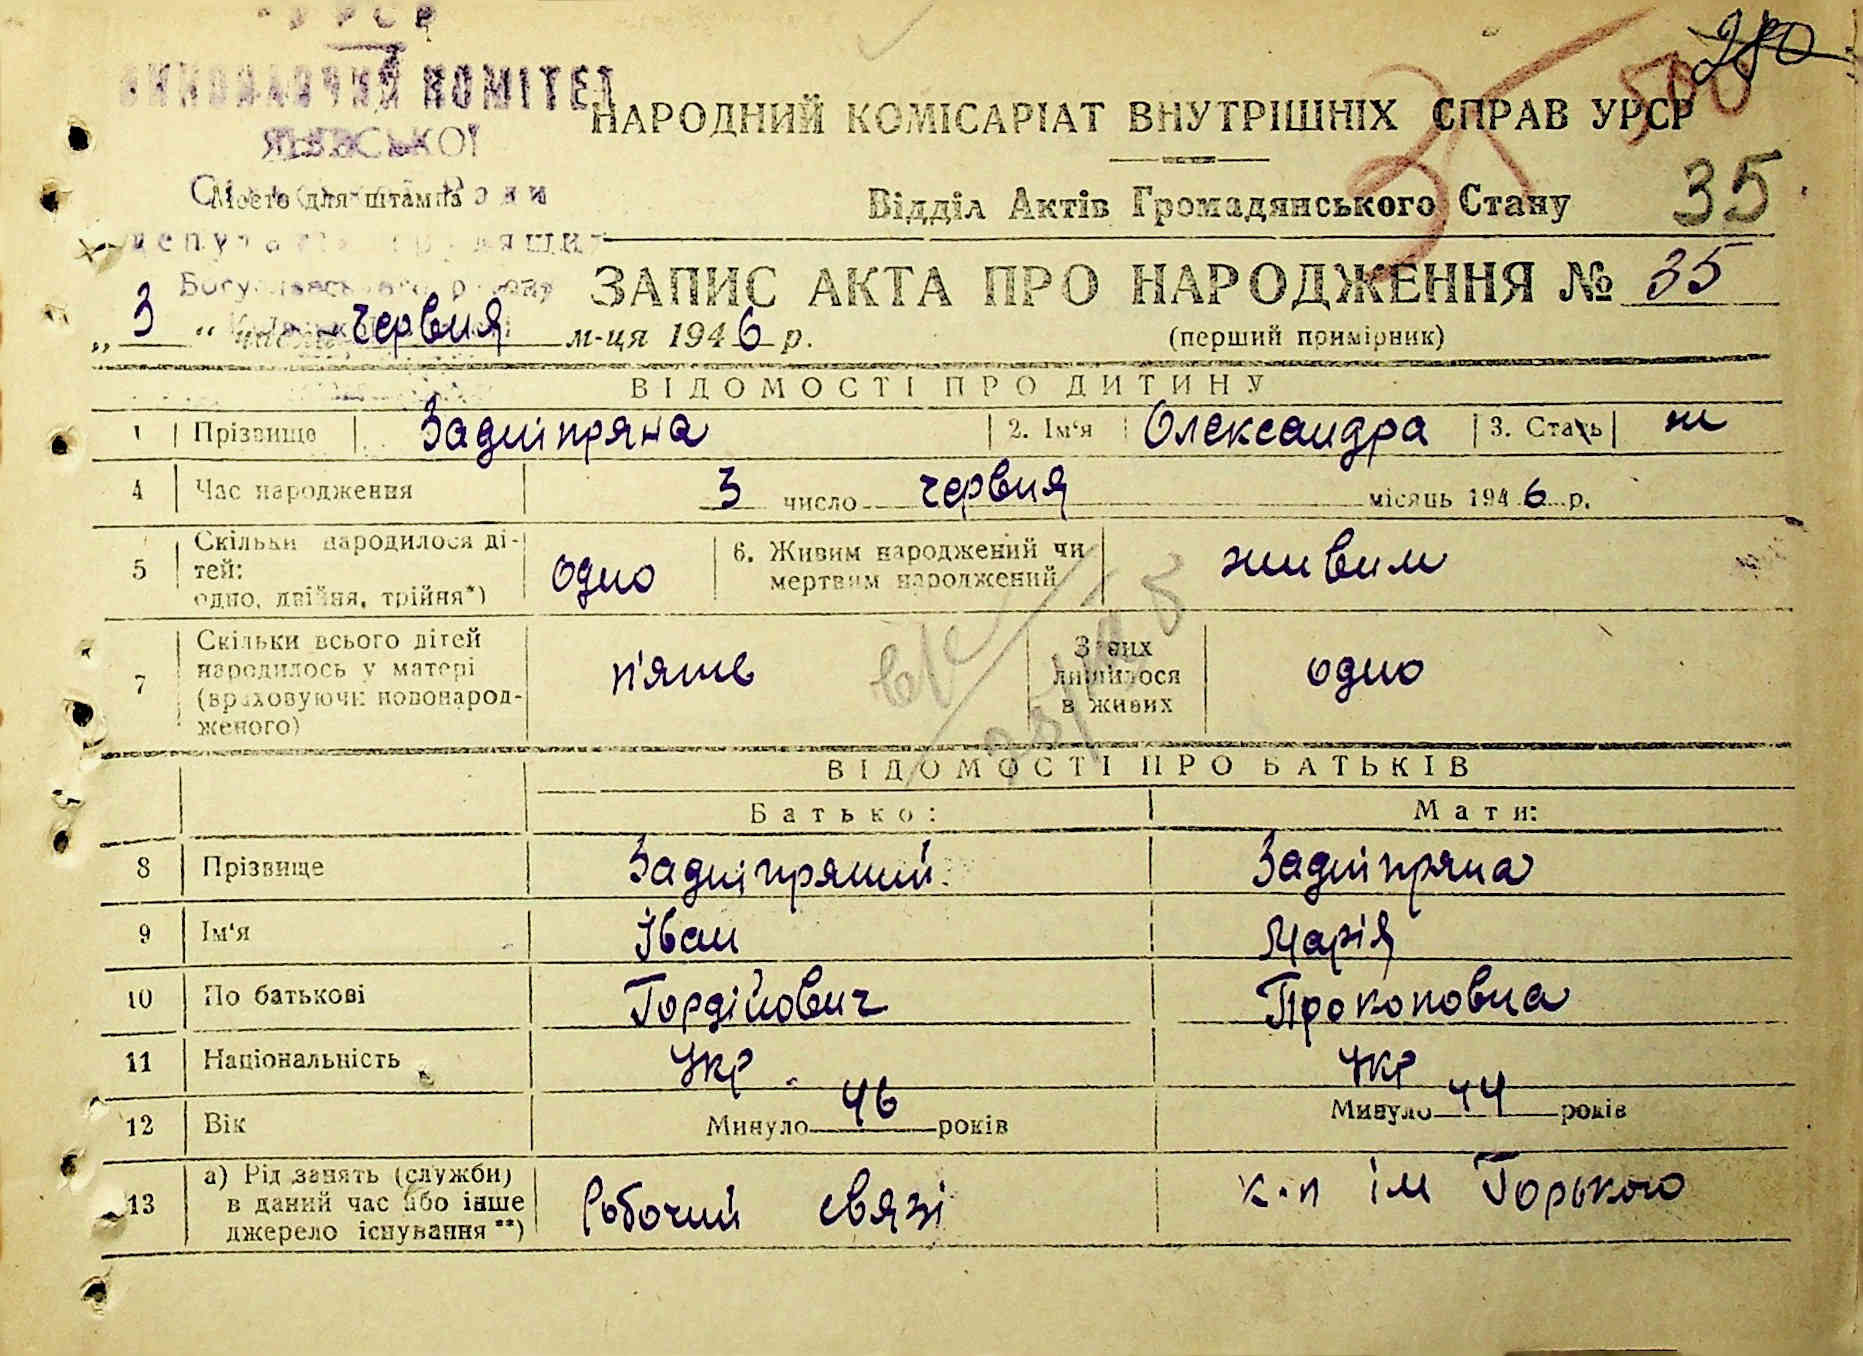 УРСР
ВИКОНАВЧИЙ КОМІТЕТ
280
500
35
НАРОДНИЙ КОМІСАРІАТ ВНУТРІШНІХ СПРАВ УРСР
Место для штампа
Відділ Актів Громадянського Стану 35
ЗАПИС АКТА ПРО НАРОДЖЕННЯ № 35
„ 3 “ числа червня м-ця 1946 р. (перший примірник)
ВІДОМОСТІ ПРО ДИТИНУ
1 Прізвище Задніпряна 2. Ім'я Олександра 3. Стать ж
4 Час народження 3 число червня місяць 1946 р.
5 Скільки народилося ді-
тей:
одно, двійня, трійня*) одно 6. Живим народжений чи
мертвим народжений живим
7 Скільки всього дітей
народилось у матері
(враховуючи новонарод-
женого) п'яте З них
лишилося
в живих одно
ВІДОМОСТІ ПРО БАТЬКІВ
Батько: Мати:
8 Прізвище Задніпряний Задніпряна
9 Ім'я Іван Марія
10 По батькові Гордійович Прокоповна
11 Національність Укр. Укр
12 Вік Минуло 46 років Минуло 44 років
13 а) Рід занять (служби)
в даний час або інше
джерело існування **) Робочий связі к-п ім Горького